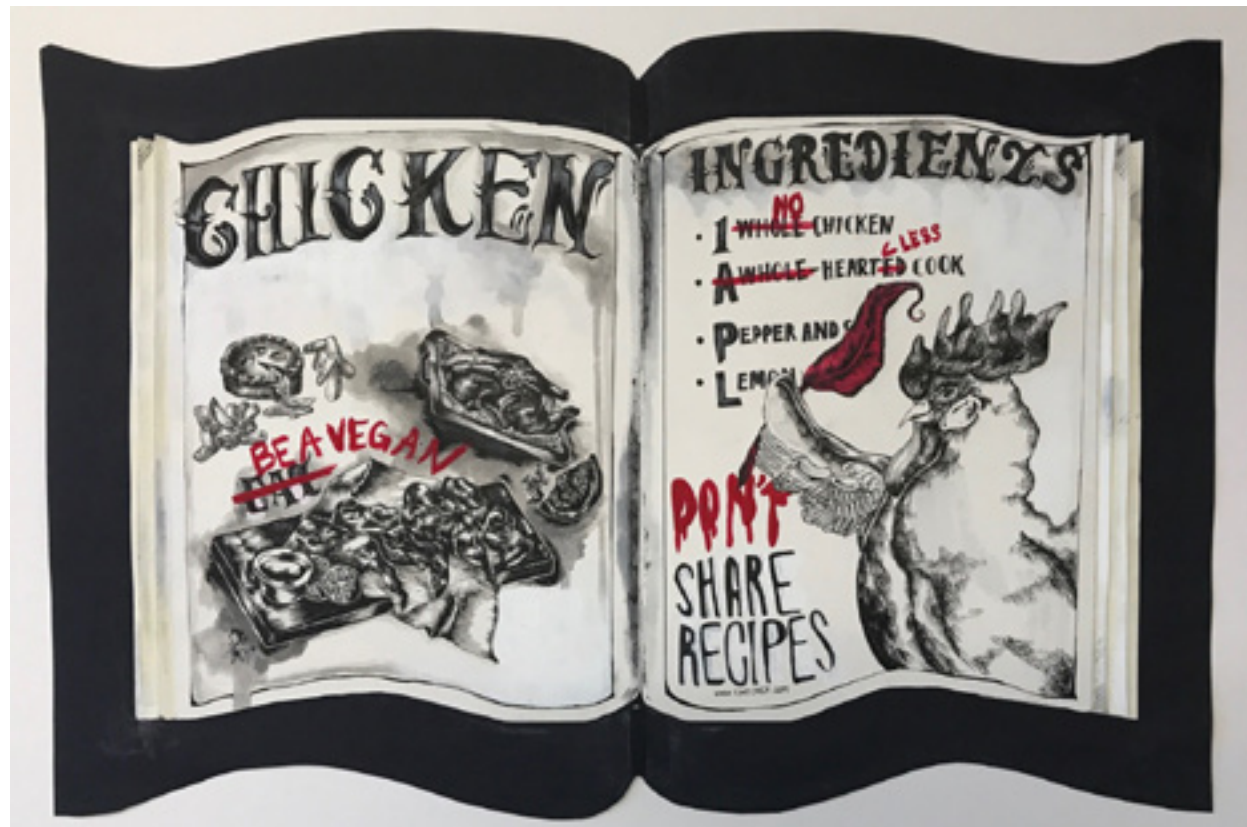 CHICKEN
BE A VEGAN
EAT
INGREDIENTS
NO
· 1 WHOLE CHICKEN
< LESS
· A WHOLE-HEARTED COOK
· PEPPER AND S
· LEMON
DON'T
SHARE
RECIPES